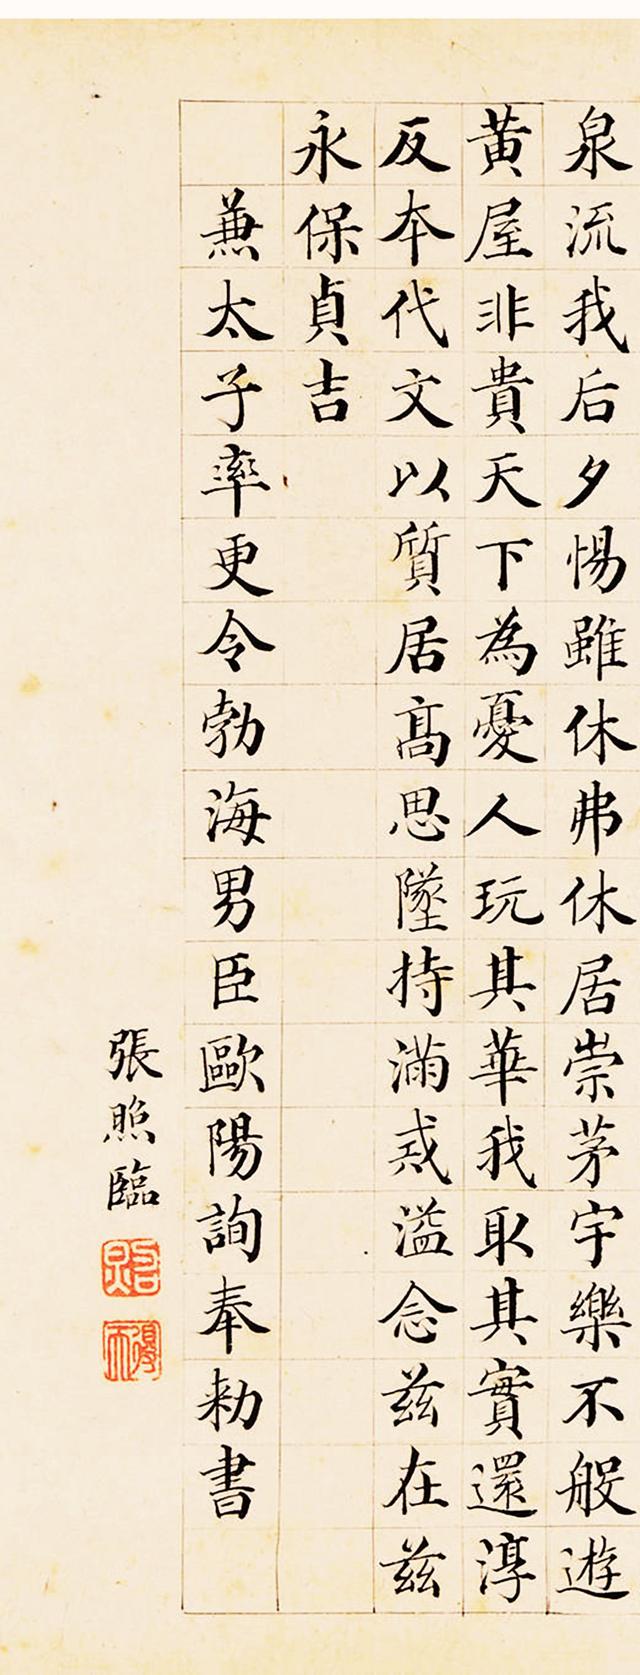 泉流我后夕惕雖休弗休居崇茅宇樂不般遊
黃屋非貴天下為憂人玩其華我取其實還淳
反夲代文以質居髙思墜持滿戒溢念兹在兹
永保貞吉
兼太子率更令勃海男臣歐陽詢奉勅書
張照臨
得天